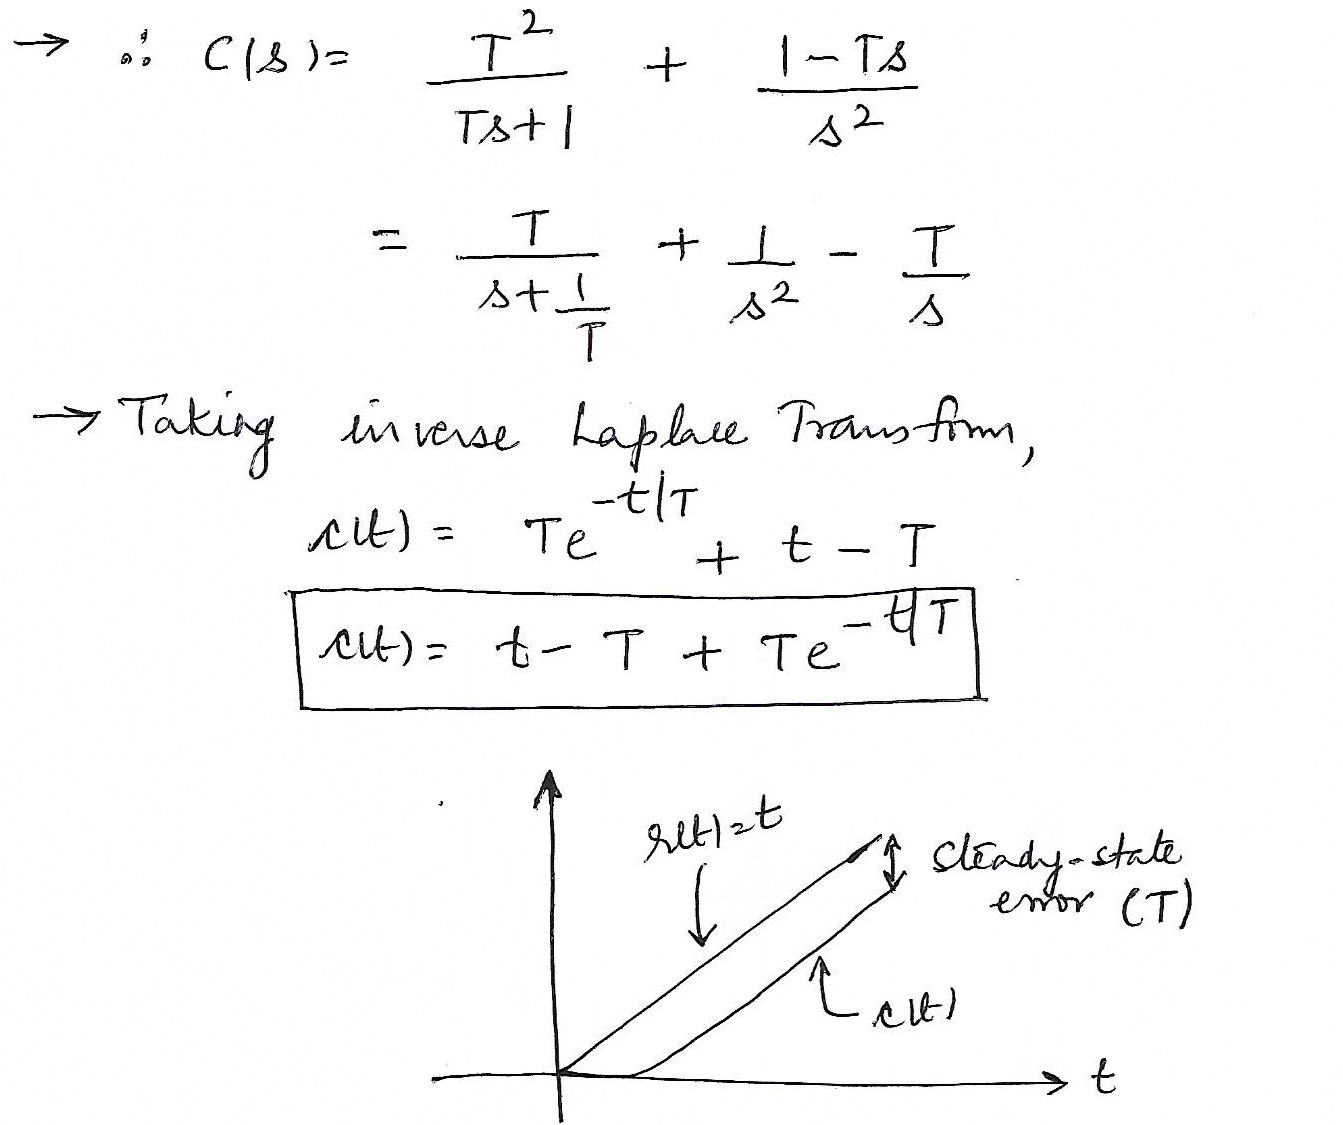 → ∴ C(s) = T²/(Ts+1) + (1-Ts)/s²
= T/(s+1/T) + 1/s² - T/s
→ Taking inverse Laplace Transform,
c(t) = Te^(-t/T) + t - T
c(t) = t - T + Te^(-t/T)
r(t)=t
steady-state
error (T)
c(t)
t